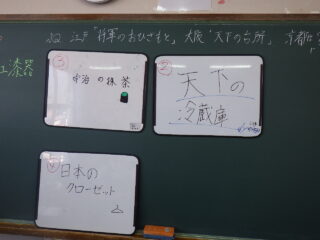 江戸「将軍のおひざもと」大阪「天下の台所」京都
漆器
③
宇治の抹茶
②
天下の
冷蔵庫
④
日本の
クローゼット